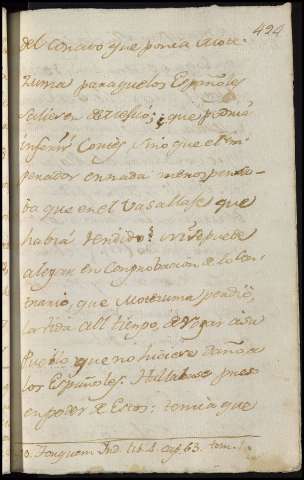 424
del conato que ponia Mote-
zuma para que los Españoles
saliesen de Mexico; ¿que podria
inferir Cortés sino que el em-
perador en nada menos pensa-
ba que en el Vasallaje que
habia rendido? ni se puede
alegar en comprobacion de lo con-
trario, que Motezuma perdió,
la vida al tiempo, de rogar a su
Pueblo que no hiciese daño a
los Españoles. Hallabase pues
en poder de Estos: temia que
Torquem. Ind. lib. 4. cap. 63. tom. 1.